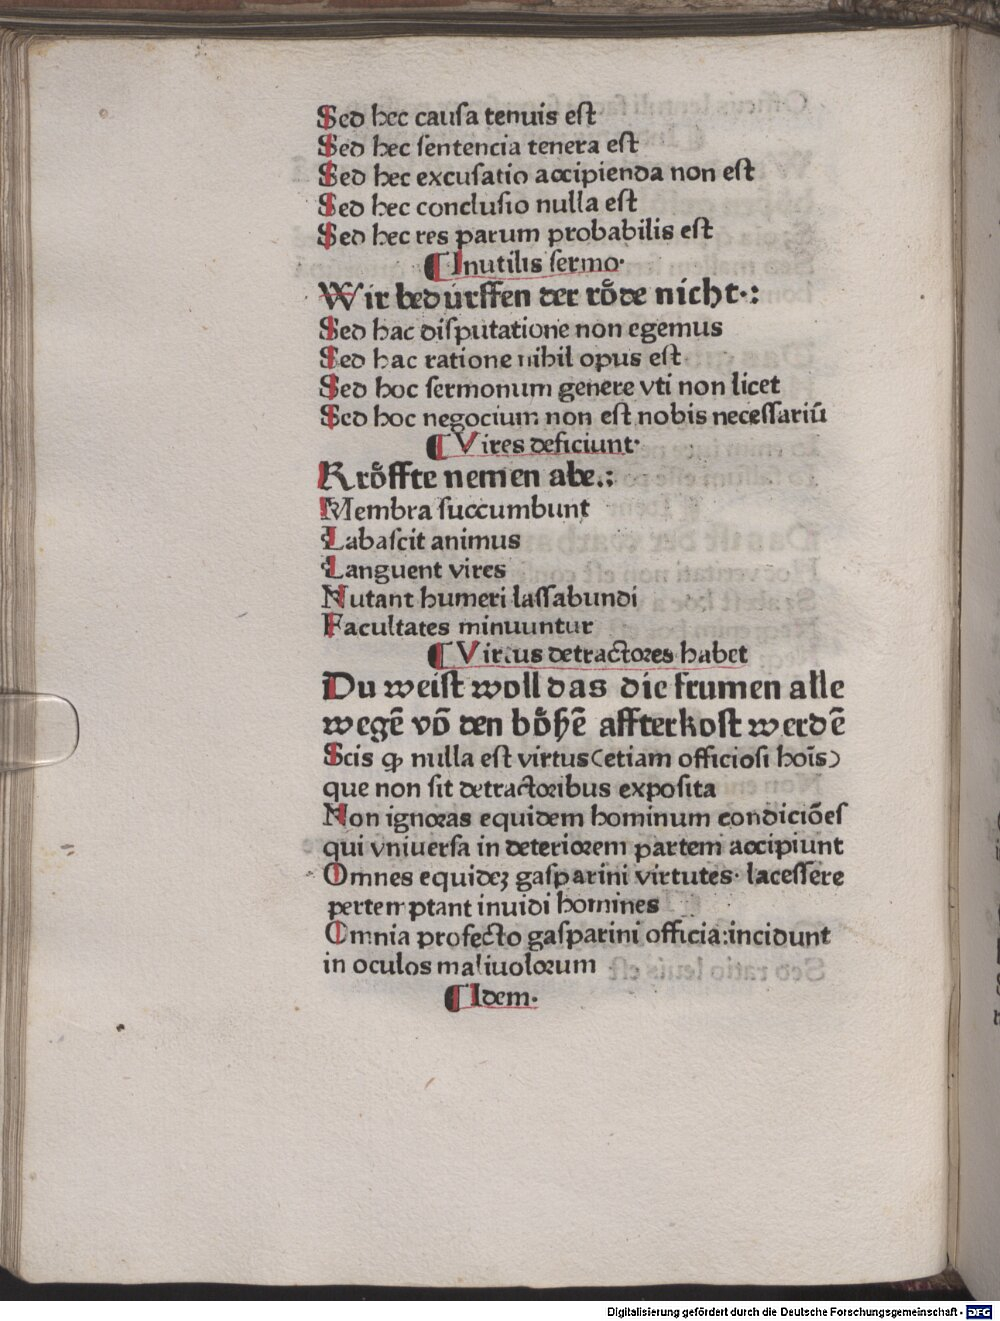 Sed hec causa tenuis est
Sed hec sentencia tenera est
Sed hec excusatio accipienda non est
Sed hec conclusio nulla est
Sed hec res parum probabilis est
¶ Inutilis sermo·
Wir bedürffen der roͤde nicht·:
Sed hac disputatione non egemus
Sed hac ratione nihil opus est
Sed hoc sermonum genere vti non licet
Sed hoc negocium non est nobis necessariū
¶ Vires deficiunt·
Kroͤffte nemen abe.:
Membra succumbunt
Labascit animus
Languent vires
Nutant humeri lassabundi
Facultates minuuntur
¶ Virtus detractores habet
Du weist woll das die frumen alle
wegē võ den boͤßē affterkost werdē
Scis ꝙ nulla est virtus (etiam officiosi hoīs)
que non sit detractoribus exposita
Non ignoras equidem hominum condiciões
qui vniuersa in deteriorem partem accipiunt
Omnes equideꝫ gasparini virtutes· lacessere
pertemptant inuidi homines
Omnia profecto gasparini officia:incidunt
in oculos maliuolorum
¶ Idem·
Digitalisierung gefördert durch die Deutsche Forschungsgemeinschaft - DFG